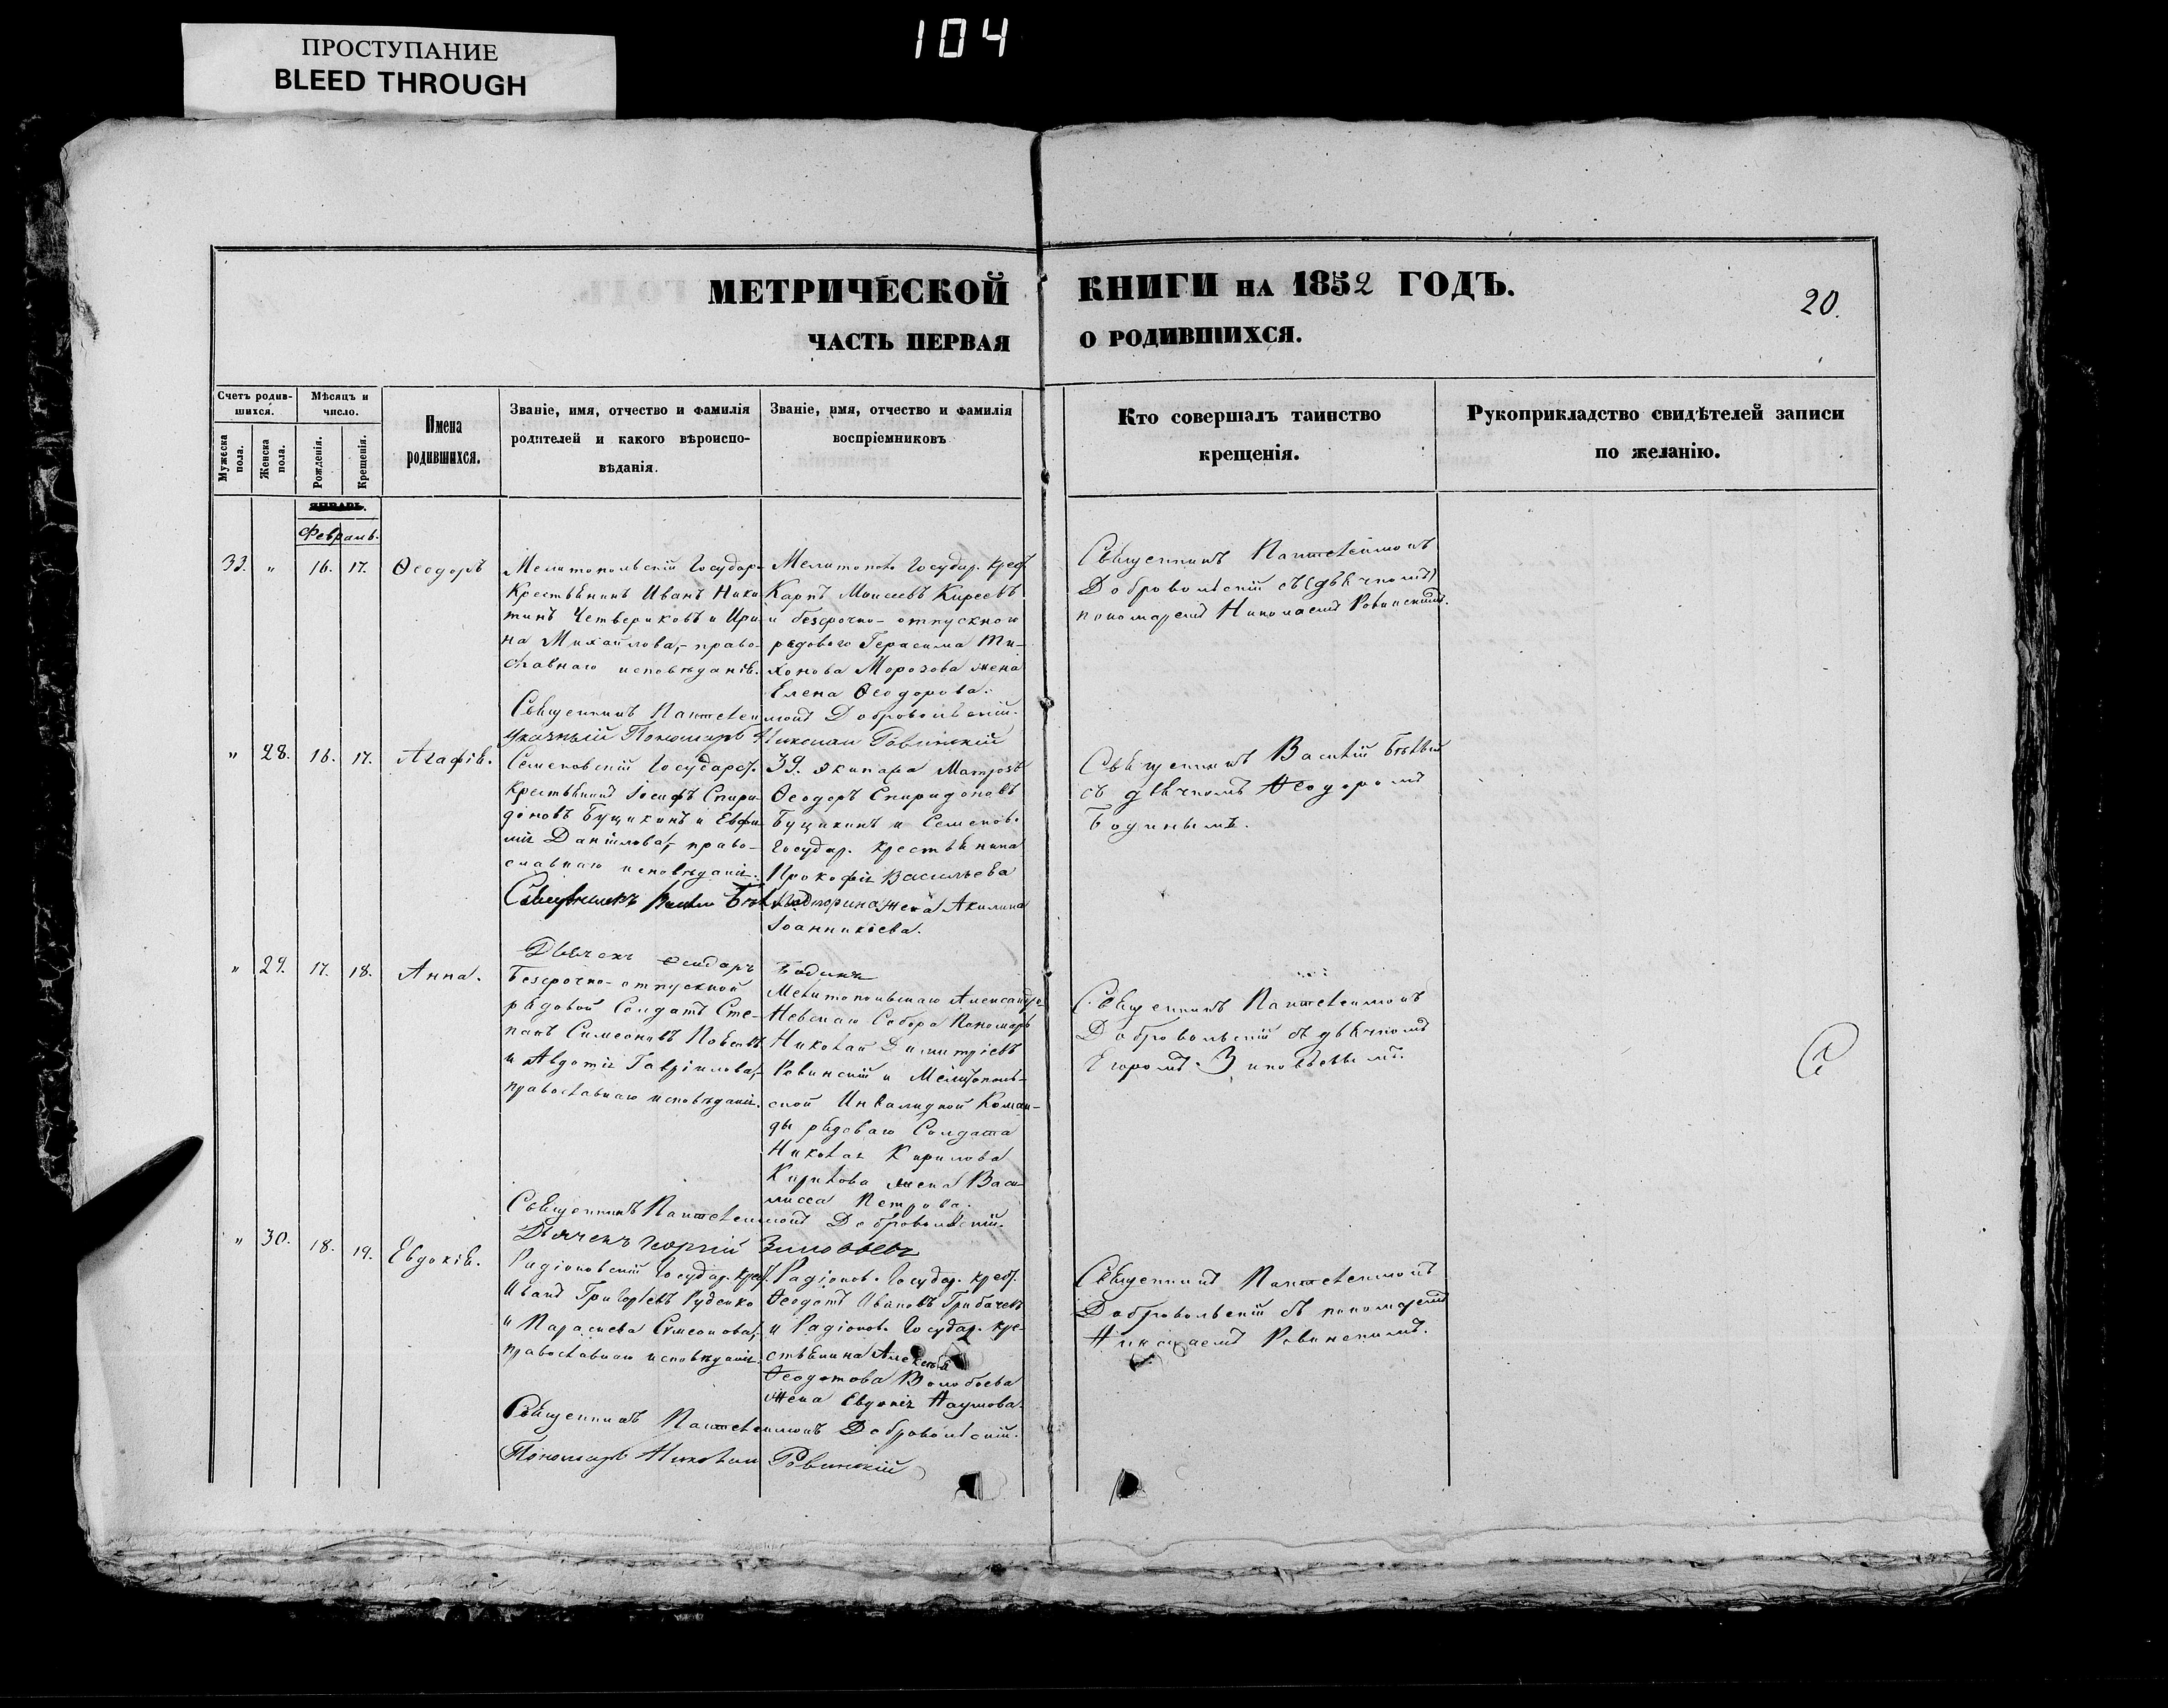 104
ПРОСТУПАНИЕ
BLEED THROUGH
МЕТРИЧЕСКОЙ КНИГИ НА 1852 ГОДЪ.
20.
ЧАСТЬ ПЕРВАЯ О РОДИВШИХСЯ.
Счетъ родив-
шихся.
Мужеска пола.
Женска пола.
Мѣсяцъ и
число.
Рожденія.
Крещенія.
Имена
родившихся.
Званіе, имя, отчество и фамилія
родителей и какого вѣроиспо-
вѣданія.
Званіе, имя, отчество и фамилія
воспріемниковъ
Кто совершалъ таинство
крещенія.
Рукоприкладство свидѣтелей записи
по желанію.
ЯНВАРЬ.
Февраль.
33. " 16. 17. Ѳеодоръ
Мелитопольскій Государ.
Крестьянинъ Иванъ Ники-
тинъ Четвериковъ и Ири-
на Михайлова,- право-
славнаго исповѣданія.
Мелитопол. Государ. крест.
Карпъ Моисеевъ Киреевъ
и безсрочно-отпускного
рядового Герасима Ти-
хонова Морозова жена
Елена Ѳеодорова.
Священникъ Пантелеимонъ
Добровольскій съ (дьячкомъ)
пономаремъ Николаемъ Ровинскимъ.
Священникъ Пантелеимонъ Добровольскій.
Указный Пономарь Николай Ровинскій
" 28. 16. 17. Агафія.
Семеновскій Государст.
крестьянинъ Іосифъ Спири-
доновъ Бущикинъ и Евфи-
мія Даніилова,- право-
славнаго исповѣданія.
39. экипажа Матросъ
Ѳеодоръ Спиридоновъ
Бущикинъ и Семенов.
Государ. крестьянина
Прокофія Васильева
жена Акилина
Іоанникіева.
Священникъ Василій
съ дьячкомъ Ѳеодоромъ
Бодинымъ.
Священникъ Василій
Дьячекъ Ѳеодоръ Бодинъ
" 29. 17. 18. Анна.
Безсрочно-отпускной
рядовой Солдатъ Сте-
панъ Симеоновъ
и Авдотія Гавріилова,-
православнаго исповѣданія.
Мелитопольскаго Александро-
Невскаго Собора Пономарь
Николай Димитріевъ
Ровинскій и Мелитополь-
ской Инвалидной Коман-
ды рядоваго Солдата
Николая Кирилова
Кирилова жена Васи-
лисса Петрова.
Священникъ Пантелеимонъ
Добровольскій съ дьячкомъ
Егоромъ Зиновьевымъ.
Священникъ Пантелеимонъ Добровольскій.
Дьячекъ Георгій Зиновьевъ
" 30. 18. 19. Евдокія.
Радіоновскій Государ. крест.
Иванъ Григорьевъ Руденко
и Параскева Симеонова,-
православнаго исповѣданія.
Радіонов. Государ. крест.
Ѳеодотъ Ивановъ Грибачевъ
и Радіонов. Государ. кре-
стьянина Алексѣя
Ѳеодотова Воробьева
жена Евдокія Наумова.
Священникъ Пантелеимонъ
Добровольскій съ пономаремъ
Николаемъ Ровинскимъ.
Священникъ Пантелеимонъ Добровольскій.
Пономарь Николай Ровинскій